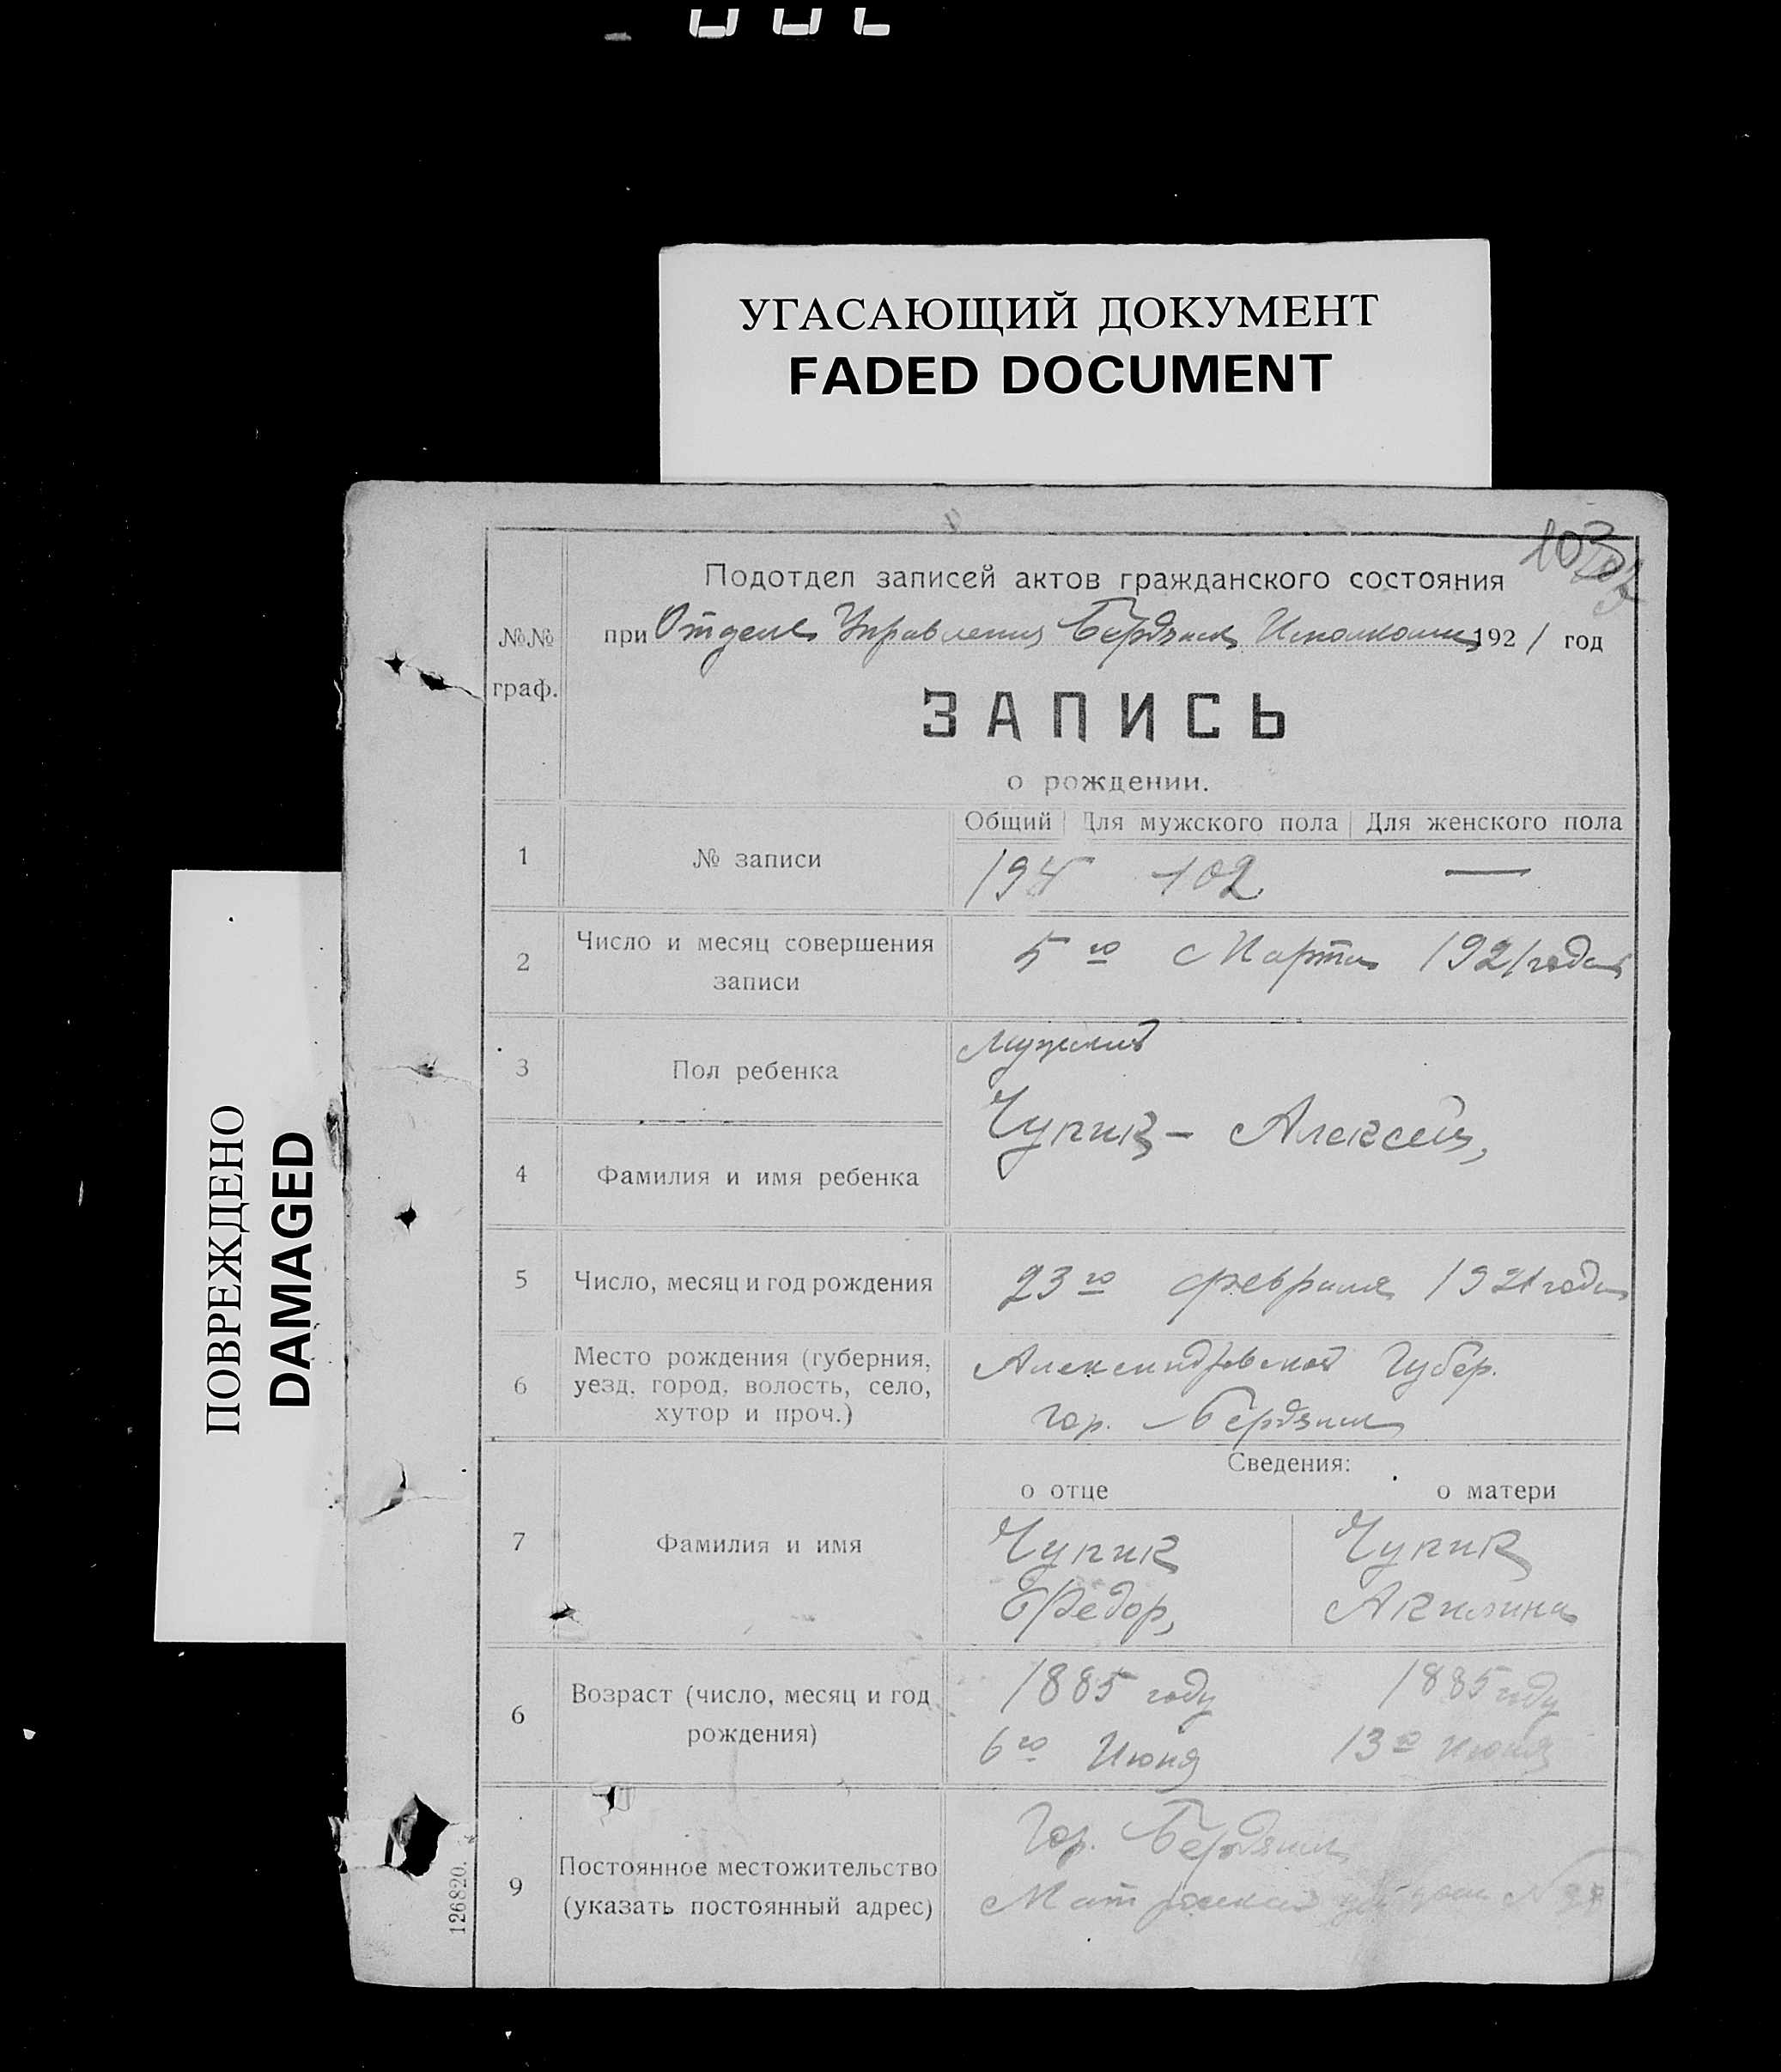 УГАСАЮЩИЙ ДОКУМЕНТ
FADED DOCUMENT
ПОВРЕЖДЕНО
DAMAGED
103
№№ граф.
Подотдел записей актов гражданского состояния
при Отделе Управления Бердянск Исполкома 1921 год
ЗАПИСЬ
о рождении.
Общий Для мужского пола Для женского пола
1 № записи 194 102 —
2 Число и месяц совершения записи 5го Марта 1921 года
3 Пол ребенка Мужской
4 Фамилия и имя ребенка Чупик - Алексей,
5 Число, месяц и год рождения 23го февраля 1921 года
6 Место рождения (губерния, Александровской Губер.
уезд, город, волость, село, гор. Бердянск
хутор и проч.)
Сведения:
о отце о матери
7 Фамилия и имя Чупик Чупик
Федор, Акилина
6 Возраст (число, месяц и год 1885 году 1885 году
рождения) 6го Июня 13го Июня
9 Постоянное местожительство Гор. Бердянск
(указать постоянный адрес) Матросская дом №
126820.